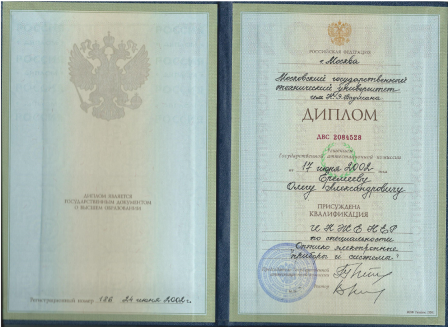 ДИПЛОМ ЯВЛЯЕТСЯ
ГОСУДАРСТВЕННЫМ ДОКУМЕНТОМ
О ВЫСШЕМ ОБРАЗОВАНИИ
Регистрационный номер 186 24 июня 2002 г.
РОССИЙСКАЯ ФЕДЕРАЦИЯ
г. Москва
Московский государственный
технический университет
им. Н.Э. Баумана
ДИПЛОМ
ДВС 2084528
Решением
Государственной аттестационной комиссии
от 17 июня 2002 года
Еремееву
Олегу Александровичу
ПРИСУЖДЕНА
КВАЛИФИКАЦИЯ
ИНЖЕНЕР
по специальности
"Оптико-электронные
приборы и системы"
Председатель Государственной
аттестационной комиссии
Ректор